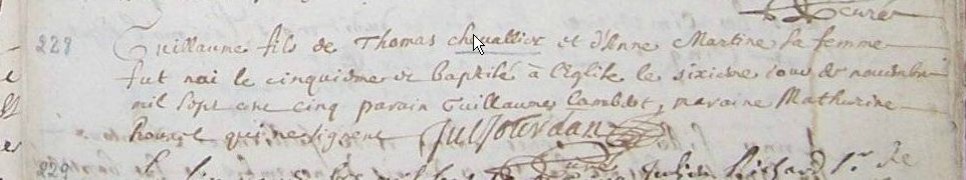 curé
228 Guillaume fils de Thomas chevallier et d'Anne Martine sa femme
fut nai le cinquième et baptisé à l'Eglise le sixieme iour de nouembre
mil sept cent cinq parain Guillaume Lambert, maraine Mathurine
houael qui ne signent Jul Jourdan
229 Julien Richard Sr de